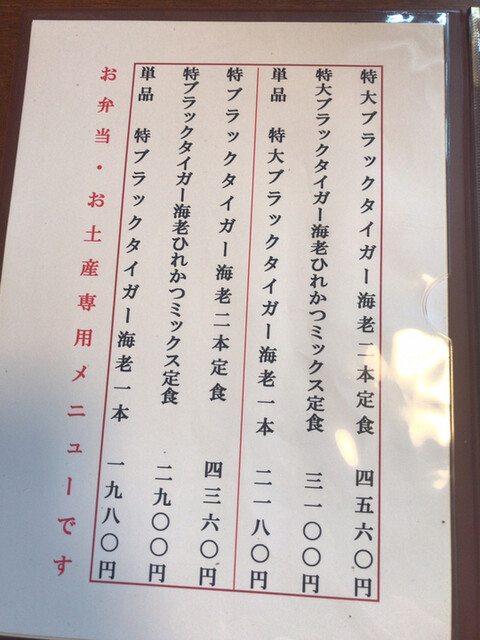 特大ブラックタイガー海老二本定食 四五六〇円
特大ブラックタイガー海老ひれかつミックス定食 三一〇〇円
単品 特大ブラックタイガー海老一本 二一八〇円
特ブラックタイガー海老二本定食 四三六〇円
特ブラックタイガー海老ひれかつミックス定食 二九〇〇円
単品 特ブラックタイガー海老一本 一九八〇円
お弁当・お土産専用メニューです